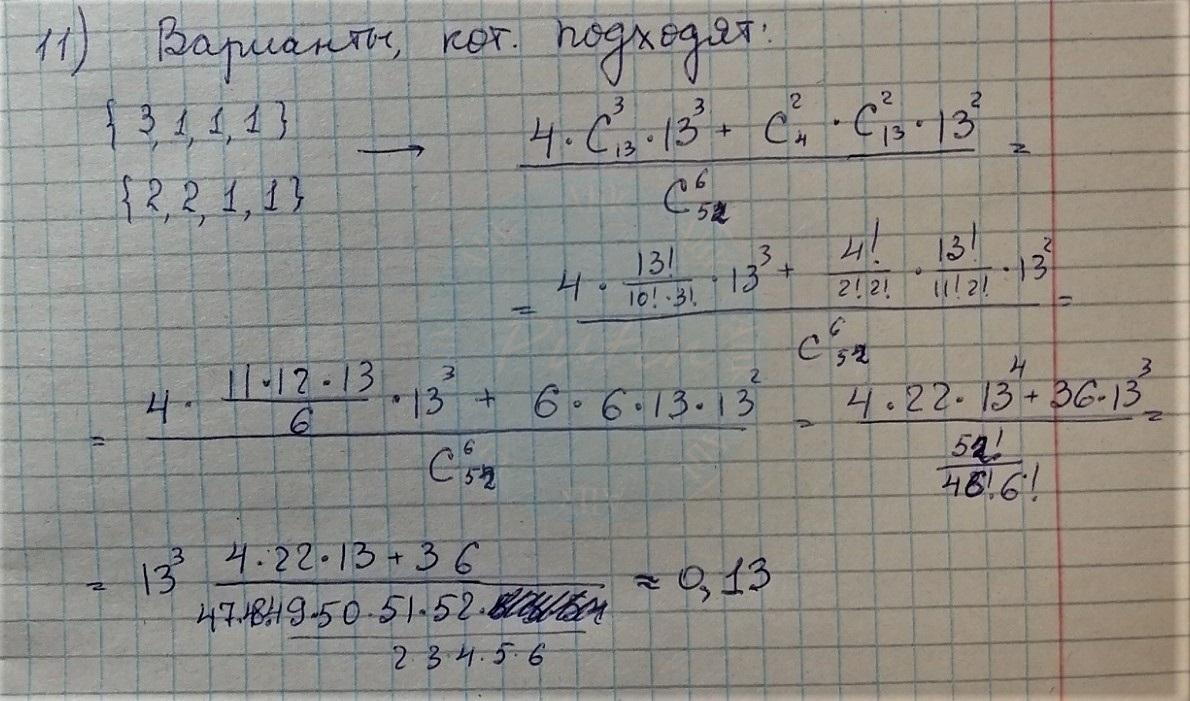 11) Варианты, кот. подходят:
{3,1,1,1}
{2,2,1,1}
→ (4·C₁₃³·13³ + C₄²·C₁₃²·13²) / C₅₂⁶ =
= (4·13!/(10!·3!)·13³ + 4!/(2!2!)·13!/(11!2!)·13²) / C₅₂⁶ =
= (4·(11·12·13)/6·13³ + 6·6·13·13²) / C₅₂⁶ = (4·22·13⁴ + 36·13³) / (52!/(46!6!)) =
= 13³ (4·22·13+36) / (47·48·49·50·51·52 / 2·3·4·5·6) ≈ 0,13